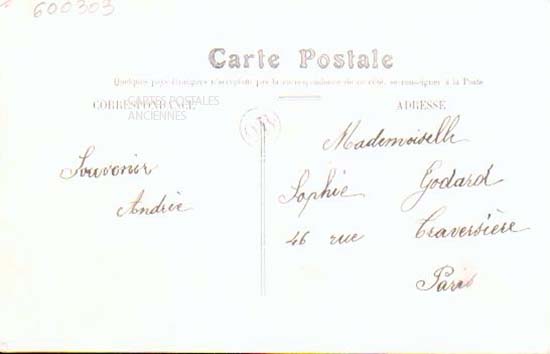 600303
Carte Postale
Quelques pays étrangers n'acceptent pas la correspondance de ce côté, se renseigner à la Poste
CORRESPONDANCE
CARTES POSTALES
ANCIENNES
Souvenir
Andrée
ADRESSE
Mademoiselle
Sophie Godard
46 rue Traversière
Paris